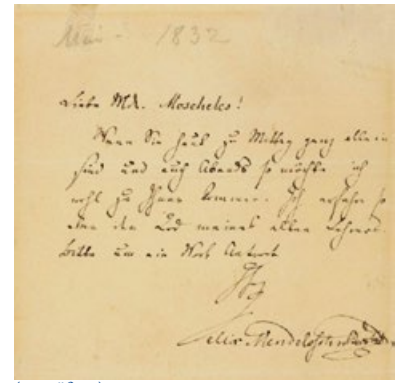 Mai - 1832
Liebe Md. Moscheles!
Wenn Sie heut zu Mittag ganz allein
sind und auch Abends so möchte ich
wohl zu Ihnen kommen. Ich erfahre so
eben den Tod meines alten Lehrers.
bitte um ein Wort Antwort
Ihr
Felix Mendelssohn Bartholdy